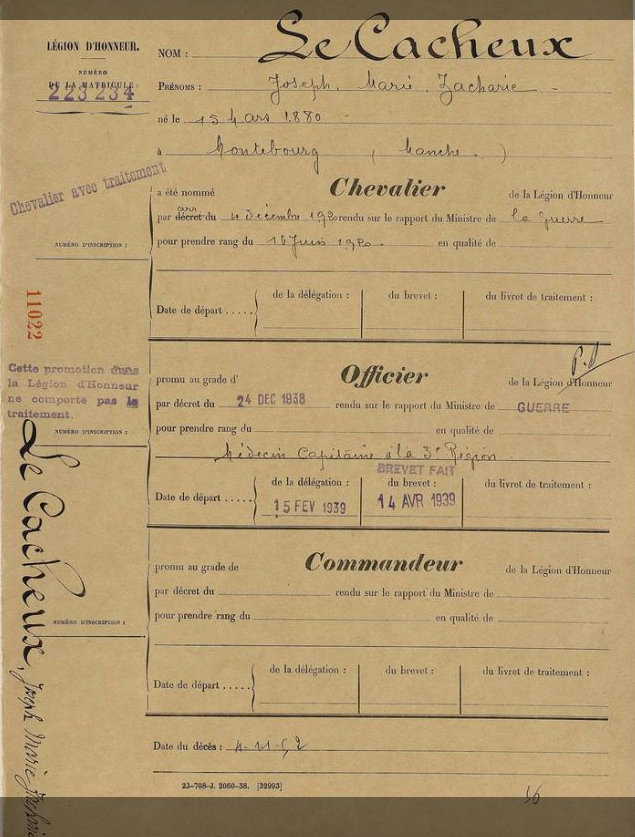 LÉGION D'HONNEUR.
NUMÉRO
DE LA MATRICULE:
223234
NOM : Le Cacheux
PRÉNOMS : Joseph. Marie. Zacharie -
né le 15 Mars 1880
à Montebourg ( Manche. )
Chevalier avec traitement
a été nommé Chevalier de la Légion d'Honneur
par décret du 4 décembre 1920 rendu sur le rapport du Ministre de la guerre
NUMÉRO D'INSCRIPTION :
pour prendre rang du 16 Juin 1920 - en qualité de
11022
Date de départ ..... de la délégation : du brevet : du livret de traitement :
Cette promotion dans
la Légion d'Honneur
ne comporte pas le
traitement.
promu au grade d' Officier de la Légion d'Honneur
par décret du 24 DEC 1938 rendu sur le rapport du Ministre de GUERRE
NUMÉRO D'INSCRIPTION :
pour prendre rang du en qualité de
Médecin Capitaine à la 3e Région
BREVET FAIT
Date de départ ..... de la délégation : du brevet : du livret de traitement :
15 FEV 1939 14 AVR 1939
Le Cacheux, Joseph Marie Zacharie
promu au grade de Commandeur de la Légion d'Honneur
par décret du rendu sur le rapport du Ministre de
NUMÉRO D'INSCRIPTION :
pour prendre rang du en qualité de
Date de départ ..... de la délégation : du brevet : du livret de traitement :
Date du décès : 4-11-52
23-708-J. 2060-38. [32993]